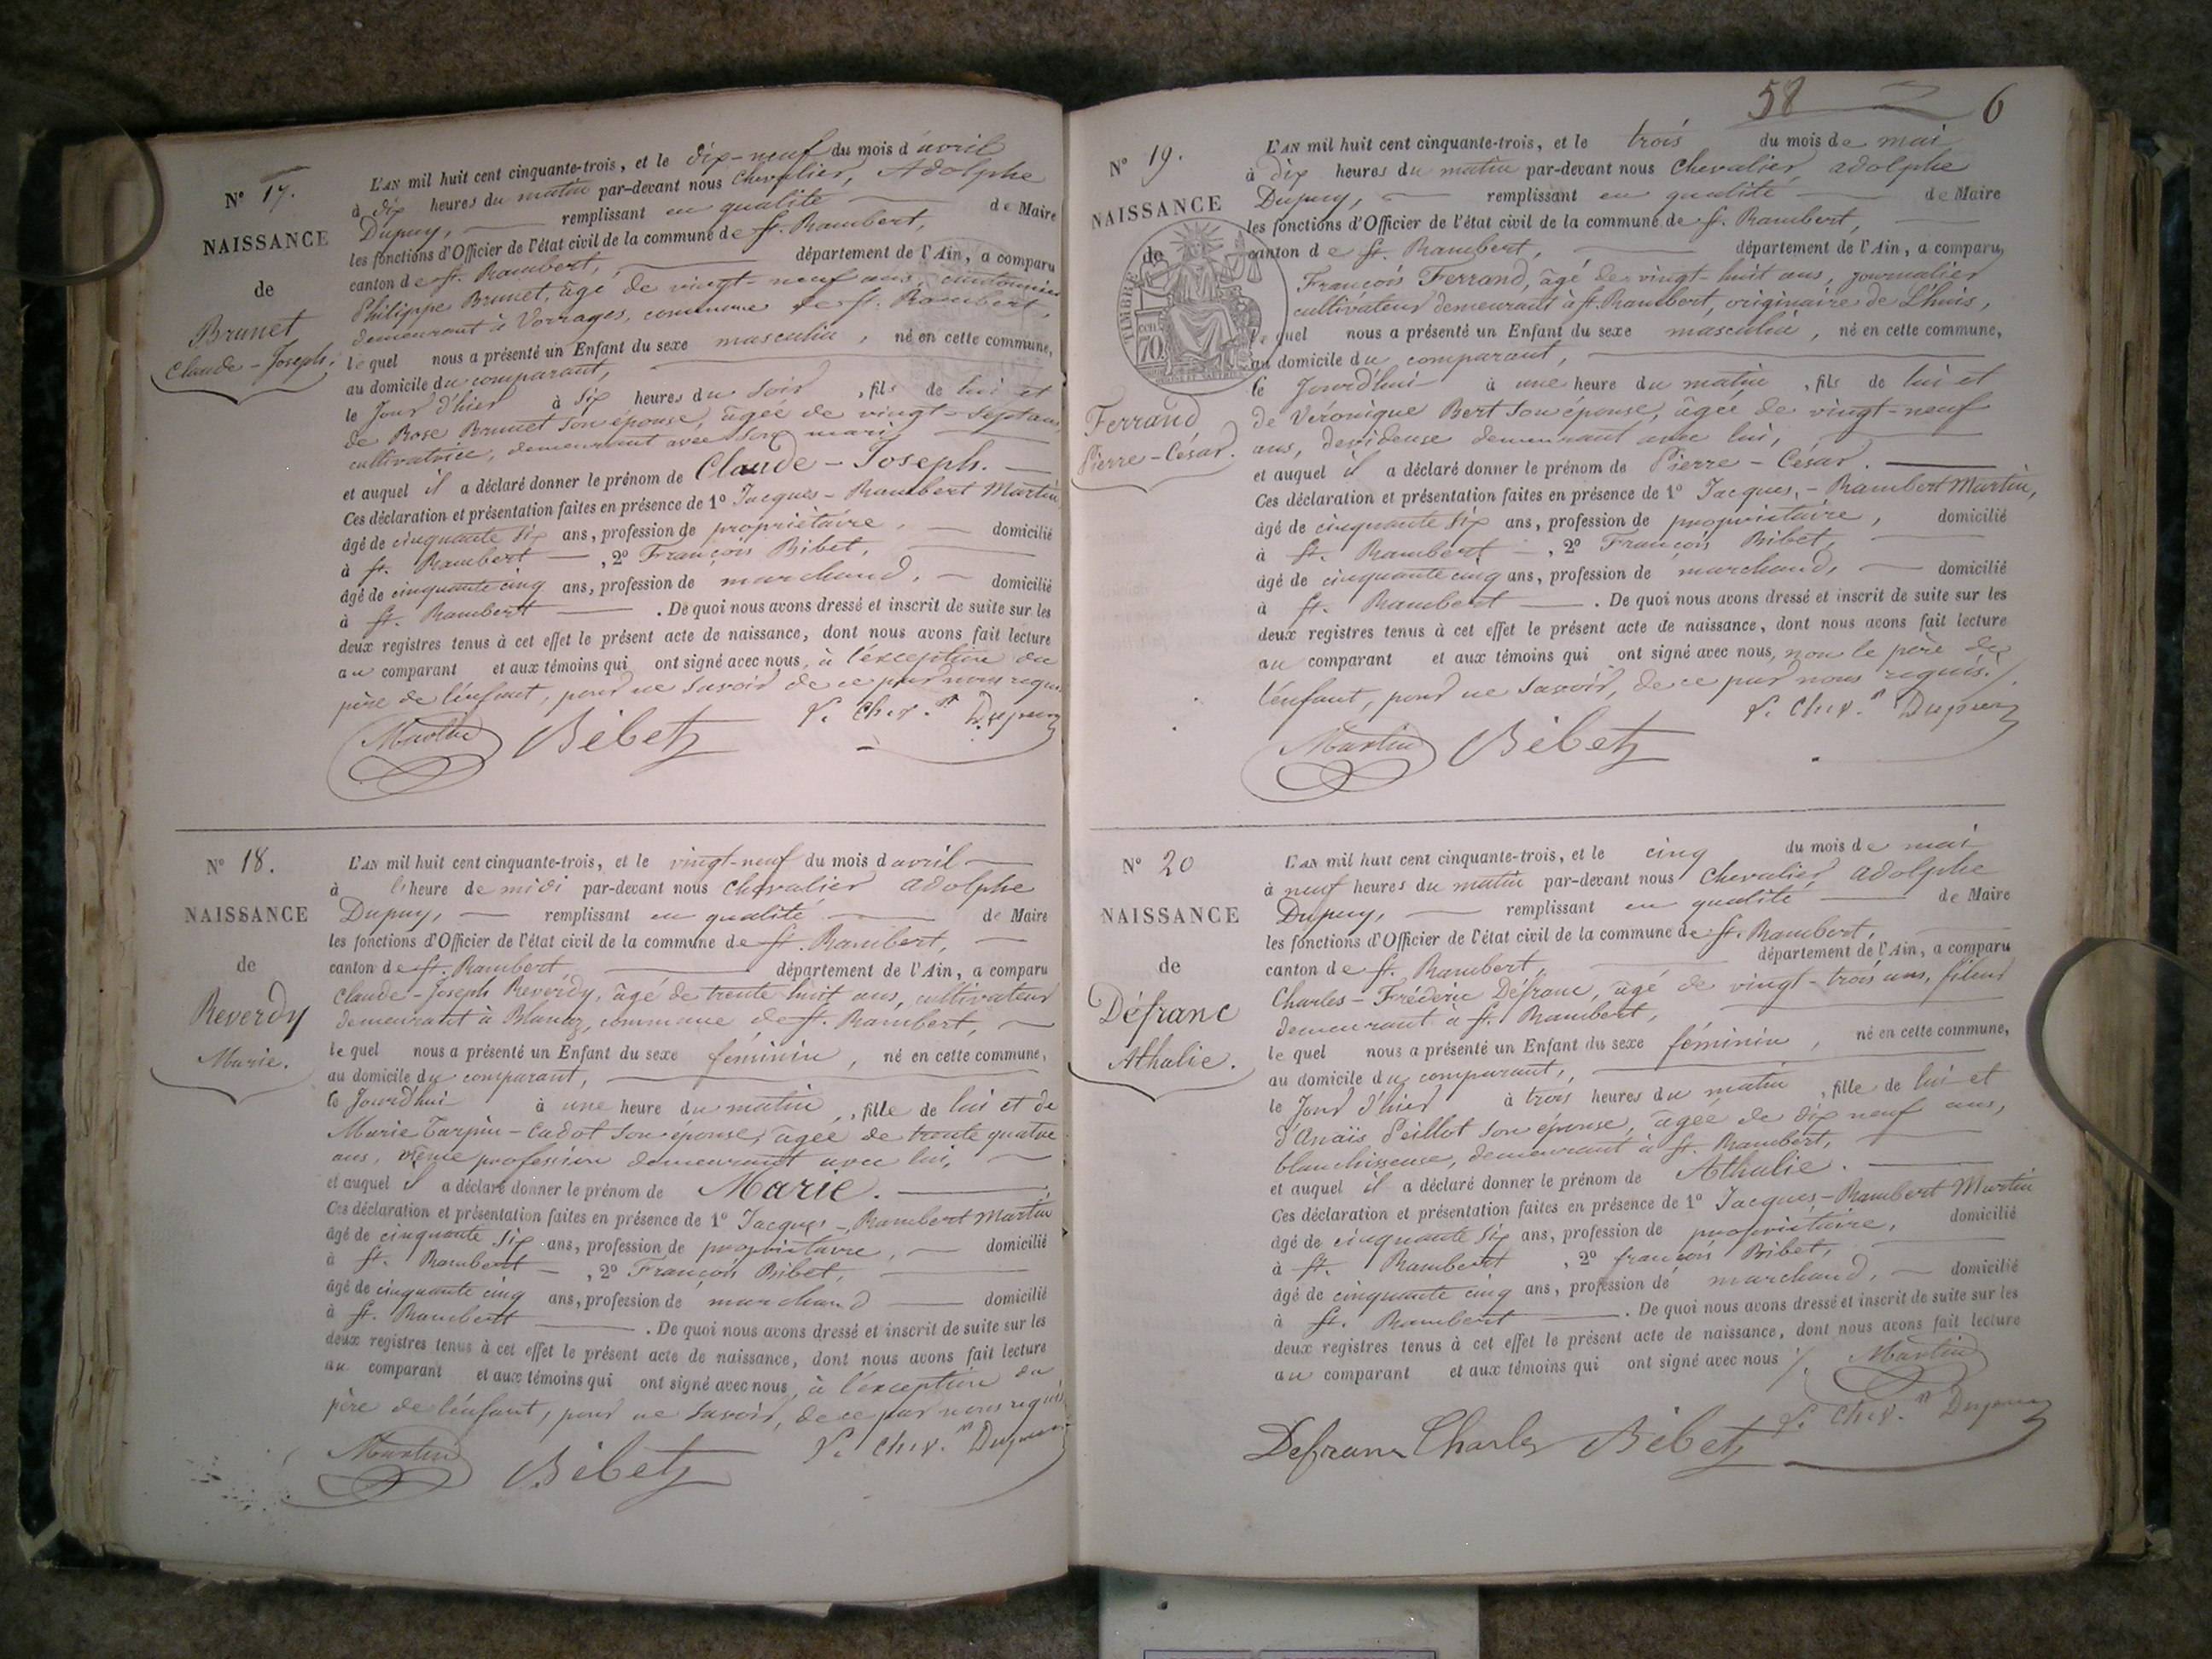 N° 17.
NAISSANCE
de
Brunet
Claude-Joseph.
L'AN mil huit cent cinquante-trois, et le dix-neuf du mois d'avril
à dix heures du matin par-devant nous Chevalier, Adolphe
Dupuy, remplissant en qualité de Maire
les fonctions d'Officier de l'état civil de la commune de St. Rambert,
canton de St. Rambert, département de l'Ain, a comparu
Philippe Brunet, âgé de vingt-neuf ans, cantonnier
demeurant à Vorrages, commune de St. Rambert,
lequel nous a présenté un Enfant du sexe masculin, né en cette commune,
au domicile du comparant,
le Jour d'hier à six heures du soir, fils de lui et
de Rose Brunet son épouse, âgée de vingt-sept ans,
cultivatrice, demeurant avec son mari
et auquel il a déclaré donner le prénom de Claude-Joseph.
Ces déclaration et présentation faites en présence de 1° Jacques-Rambert Martin
âgé de cinquante six ans, profession de propriétaire, domicilié
à St. Rambert, 2° François Bibet,
âgé de cinquante cinq ans, profession de marchand, domicilié
à St. Rambert. De quoi nous avons dressé et inscrit de suite sur les
deux registres tenus à cet effet le présent acte de naissance, dont nous avons fait lecture
au comparant et aux témoins qui ont signé avec nous, à l'exception du
père de l'enfant, pour ne savoir de ce par nous requis
Martin Bibet Chev. Dupuy
N° 18.
NAISSANCE
de
Reverdy
Marie.
L'AN mil huit cent cinquante-trois, et le vingt-neuf du mois d'avril
à l'heure de midi par-devant nous Chevalier Adolphe
Dupuy, remplissant en qualité de Maire
les fonctions d'Officier de l'état civil de la commune de St. Rambert,
canton de St. Rambert, département de l'Ain, a comparu
Claude-Joseph Reverdy, âgé de trente huit ans, cultivateur
demeurant à Blanaz, commune de St. Rambert,
lequel nous a présenté un Enfant du sexe féminin, né en cette commune,
au domicile du comparant,
le Jourd'hui à une heure du matin, fille de lui et de
Marie Tarpin-Cadot son épouse, âgée de trente quatre
ans, même profession demeurant avec lui,
et auquel il a déclaré donner le prénom de Marie.
Ces déclaration et présentation faites en présence de 1° Jacques-Rambert Martin
âgé de cinquante six ans, profession de propriétaire, domicilié
à St. Rambert, 2° François Bibet,
âgé de cinquante cinq ans, profession de marchand domicilié
à St. Rambert. De quoi nous avons dressé et inscrit de suite sur les
deux registres tenus à cet effet le présent acte de naissance, dont nous avons fait lecture
au comparant et aux témoins qui ont signé avec nous, à l'exception du
père de l'enfant, pour ne savoir, de ce par nous requis
Martin Bibet Chev. Dupuy
58
6
N° 19.
NAISSANCE
de
TIMBRE
70
Ferrand
Pierre-César.
L'AN mil huit cent cinquante-trois, et le trois du mois de mai
à dix heures du matin par-devant nous Chevalier, Adolphe
Dupuy, remplissant en qualité de Maire
les fonctions d'Officier de l'état civil de la commune de St. Rambert,
canton de St. Rambert, département de l'Ain, a comparu
François Ferrand, âgé de vingt-huit ans, journalier
cultivateur demeurant à St. Rambert, originaire de L'huis,
lequel nous a présenté un Enfant du sexe masculin, né en cette commune,
au domicile du comparant,
le Jourd'hui à une heure du matin, fils de lui et
de Véronique Bert son épouse, âgée de vingt-neuf
ans, devideuse demeurant avec lui,
et auquel il a déclaré donner le prénom de Pierre-César.
Ces déclaration et présentation faites en présence de 1° Jacques-Rambert Martin,
âgé de cinquante six ans, profession de propriétaire, domicilié
à St. Rambert, 2° François Bibet,
âgé de cinquante cinq ans, profession de marchand, domicilié
à St. Rambert. De quoi nous avons dressé et inscrit de suite sur les
deux registres tenus à cet effet le présent acte de naissance, dont nous avons fait lecture
au comparant et aux témoins qui ont signé avec nous, non le père de
l'enfant, pour ne savoir, de ce par nous requis.
Martin Bibet Chev. Dupuy
N° 20
NAISSANCE
de
Défranc
Athalie.
L'AN mil huit cent cinquante-trois, et le cinq du mois de mai
à neuf heures du matin par-devant nous Chevalier Adolphe
Dupuy, remplissant en qualité de Maire
les fonctions d'Officier de l'état civil de la commune de St. Rambert,
canton de St. Rambert, département de l'Ain, a comparu
Charles-Frédéric Défranc, âgé de vingt-trois ans, fileur
demeurant à St. Rambert,
lequel nous a présenté un Enfant du sexe féminin, né en cette commune,
au domicile du comparant,
le Jour d'hier à trois heures du matin, fille de lui et
d'Anaïs Peillot son épouse, âgée de dix neuf ans,
blanchisseuse, demeurant à St. Rambert,
et auquel il a déclaré donner le prénom de Athalie.
Ces déclaration et présentation faites en présence de 1° Jacques-Rambert Martin
âgé de cinquante six ans, profession de propriétaire, domicilié
à St. Rambert, 2° françois Bibet,
âgé de cinquante cinq ans, profession de marchand, domicilié
à St. Rambert. De quoi nous avons dressé et inscrit de suite sur les
deux registres tenus à cet effet le présent acte de naissance, dont nous avons fait lecture
au comparant et aux témoins qui ont signé avec nous
Martin
Defranc Charles Bibet Chev. Dupuy